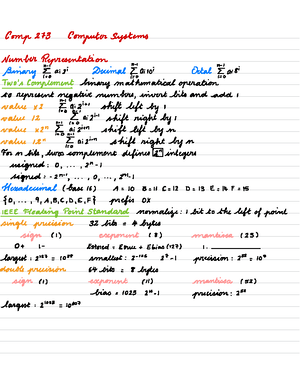 Comp 273 Computer Systems
Number Representation
Binary Σ aᵢ2ⁱ Decimal Σ aᵢ10ⁱ Octal Σ aᵢ8ⁱ
Two's Complement binary mathematical operation
to represent negative numbers, invert bits and add 1
value x2 Σ aᵢ2ⁱ⁺¹ shift left by 1
value /2 Σ aᵢ2ⁱ⁻¹ shift right by 1
value x2ⁿ Σ aᵢ2ⁱ⁺ⁿ shift left by n
value /2ⁿ Σ aᵢ2ⁱ⁻ⁿ shift right by n
For n bits, two's complement defines 2ⁿ integers
unsigned: 0, ..., 2ⁿ-1
signed: -2ⁿ⁻¹, ..., 0, ..., 2ⁿ⁻¹-1
Hexadecimal (base 16) A = 10 B = 11 C = 12 D = 13 E = 14 F = 15
{0, ..., 9, A, B, C, D, E, F} prefix 0X
IEEE Floating Point Standard normalize: 1 bit to the left of point
single precision 32 bits = 4 bytes
sign (1) exponent (8) mantissa (23)
0+ 1- Estored = Etrue + Ebias (127) 1.
largest: smallest: 2⁻¹²⁶ precision:
double precision 64 bits = 8 bytes
sign (1) exponent (11) mantissa (52)
bias = 1023 precision: 2⁵²
largest: